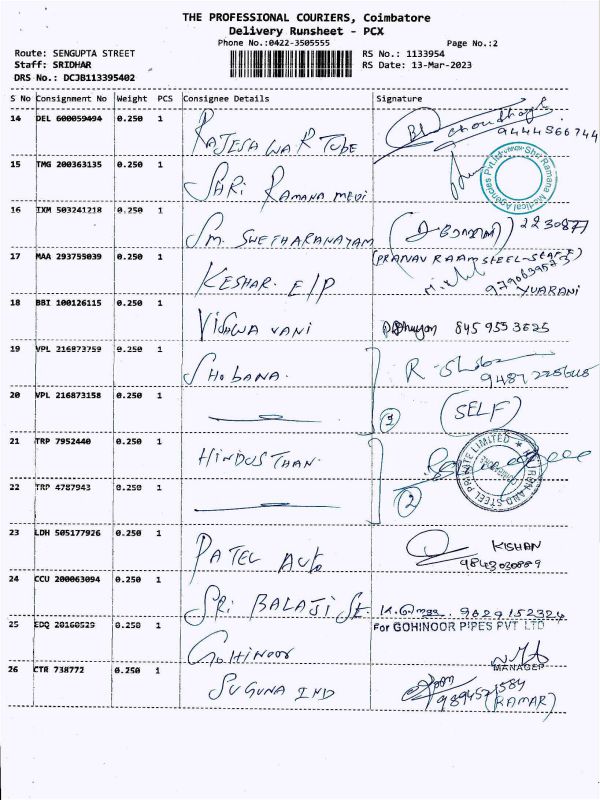 THE PROFESSIONAL COURIERS, Coimbatore
Delivery Runsheet - PCX
Phone No.:0422-3505555 Page No.:2
Route: SENGUPTA STREET RS No.: 1133954
Staff: SRIDHAR RS Date: 13-Mar-2023
DRS No.: DCJB113395402
S No Consignment No Weight PCS Consignee Details Signature
14 DEL 600059494 0.250 1 RAJESAWAR TUBE
9444566744
15 TMG 200363135 0.250 1 SHRI RAMANA MEDI
Shri Ramana Medical Agencies Pvt.Ltd
16 IXM 503241218 0.250 1 SM. SWETHARANAYAM 2230877
(PRANAV RAAM STEEL-STAFF)
17 MAA 293755039 0.250 1 KESHAR. E/P
YUARANI
18 BBI 100126115 0.250 1 VISHWA VANI 845 955 3625
19 VPL 216873759 0.250 1 SHOBANA. R-
20 VPL 216873158 0.250 1 (SELF)
21 TRP 7952440 0.250 1 HINDUSTHAN.
22 TRP 4787943 0.250 1 2
IRON AND STEEL PRIVATE LIMITED
23 LDH 505177926 0.250 1 PATEL Auto KISHAN
9843030889
24 CCU 200063094 0.250 1 SRI BALAJI St. 9629152324
25 EDQ 20160529 0.250 1 GOHINOOR For GOHINOOR PIPES PVT LTD
MANAGER
26 CTR 738772 0.250 1 SUGUNA IND 9894571584
(RAMAR)